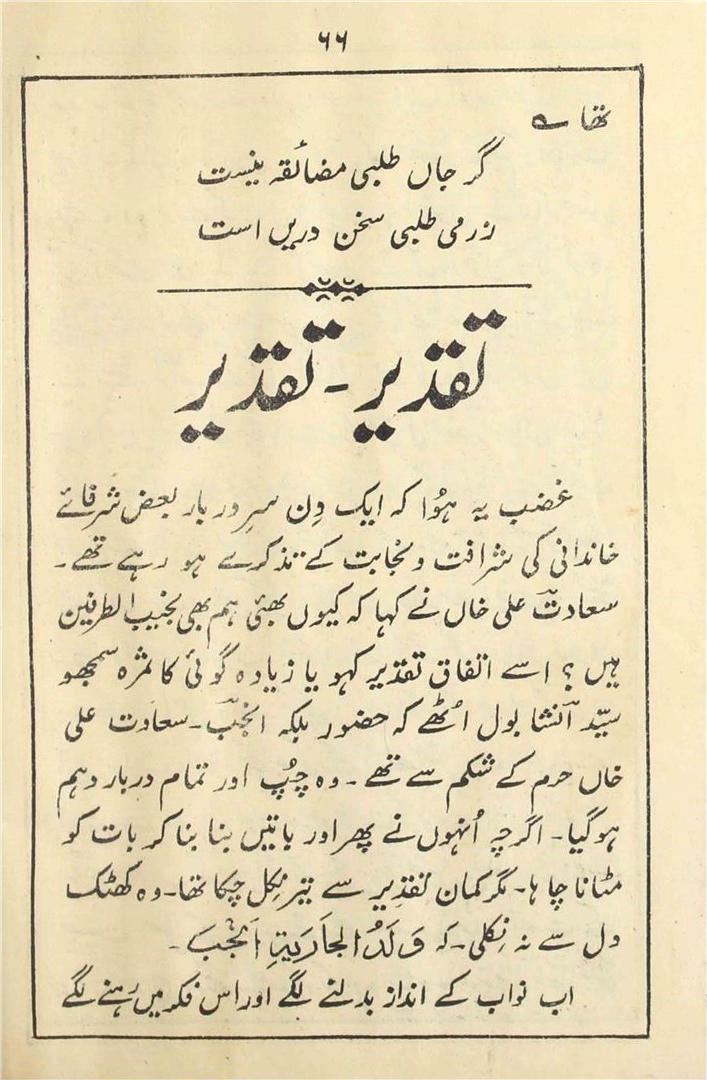 ۶۶
تھا ے
گر جاں طلبی مضائقہ نیست
زر می طلبی سخن دریں است
تقدیر ۔ تقدیر
غضب یہ ہُوا کہ ایک دِن سرِ دربار بعض شرفائے
خاندانی کی شرافت و نجابت کے تذکرے ہو رہے تھے ۔
سعادت علی خاں نے کہا کہ کیوں بھئی ہم بھی نجیب الطرفین
ہیں ؟ اسے اتفاق تقدیر کہو یا زیادہ گوئی کا ثمرہ سمجھو
سیّد انشا بول اُٹھے کہ حضور بلکہ انجب ۔ سعادت علی
خاں حرم کے شکم سے تھے ۔ وہ چُپ اور تمام دربار درہم
ہو گیا ۔ اگرچہ اُنہوں نے پھر اور باتیں بنا بنا کر بات کو
مٹانا چاہا ۔ مگر کمان تقدیر سے تیر نِکل چکا تھا ۔ وہ کھٹک
دل سے نہ نِکلی ۔ کہ وَلَدُ الجَارِیَۃِ اَنْجَب ۔
اب نواب کے انداز بدلنے لگے اور اس فکر میں رہنے لگے